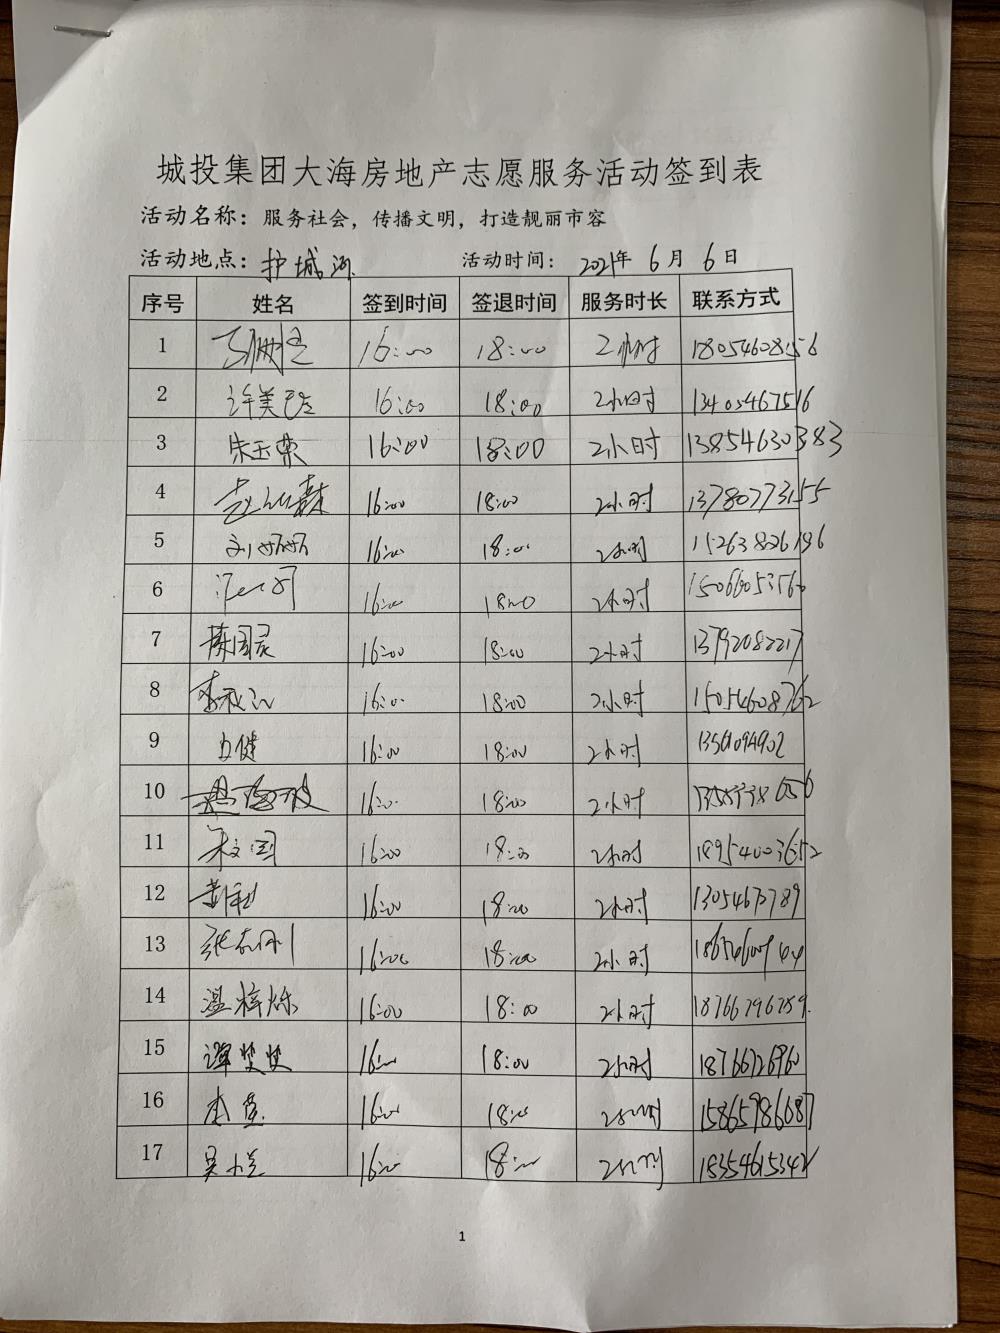 城投集团大海房地产志愿服务活动签到表
活动名称：服务社会，传播文明，打造靓丽市容
活动地点：护城河 活动时间：2021年6月6日
序号 姓名 签到时间 签退时间 服务时长 联系方式
1 16:00 18:00 2小时 18054608156
2 许美 16:00 18:00 2小时 13405467516
3 朱玉荣 16:00 18:00 2小时 13854630383
4 16:00 18:00 2小时 13780773155
5 刘丽丽 16:00 18:00 2小时 15263826196
6 16:00 18:00 2小时
7 陈国灵 16:00 18:00 2小时 13792082217
8 16:00 18:00 2小时 15054608762
9 16:00 18:00 2小时
10 16:00 18:00 2小时
11 16:00 18:00 2小时 18954003652
12 16:00 18:00 2小时
13 16:00 18:00 2小时
14 温梓烁 16:00 18:00 2小时 18766796789
15 谭焚焚 16:00 18:00 2小时 18766726960
16 16:00 18:00 2小时 15865986087
17 吴小兰 16:00 18:00 2小时 18354615342
1